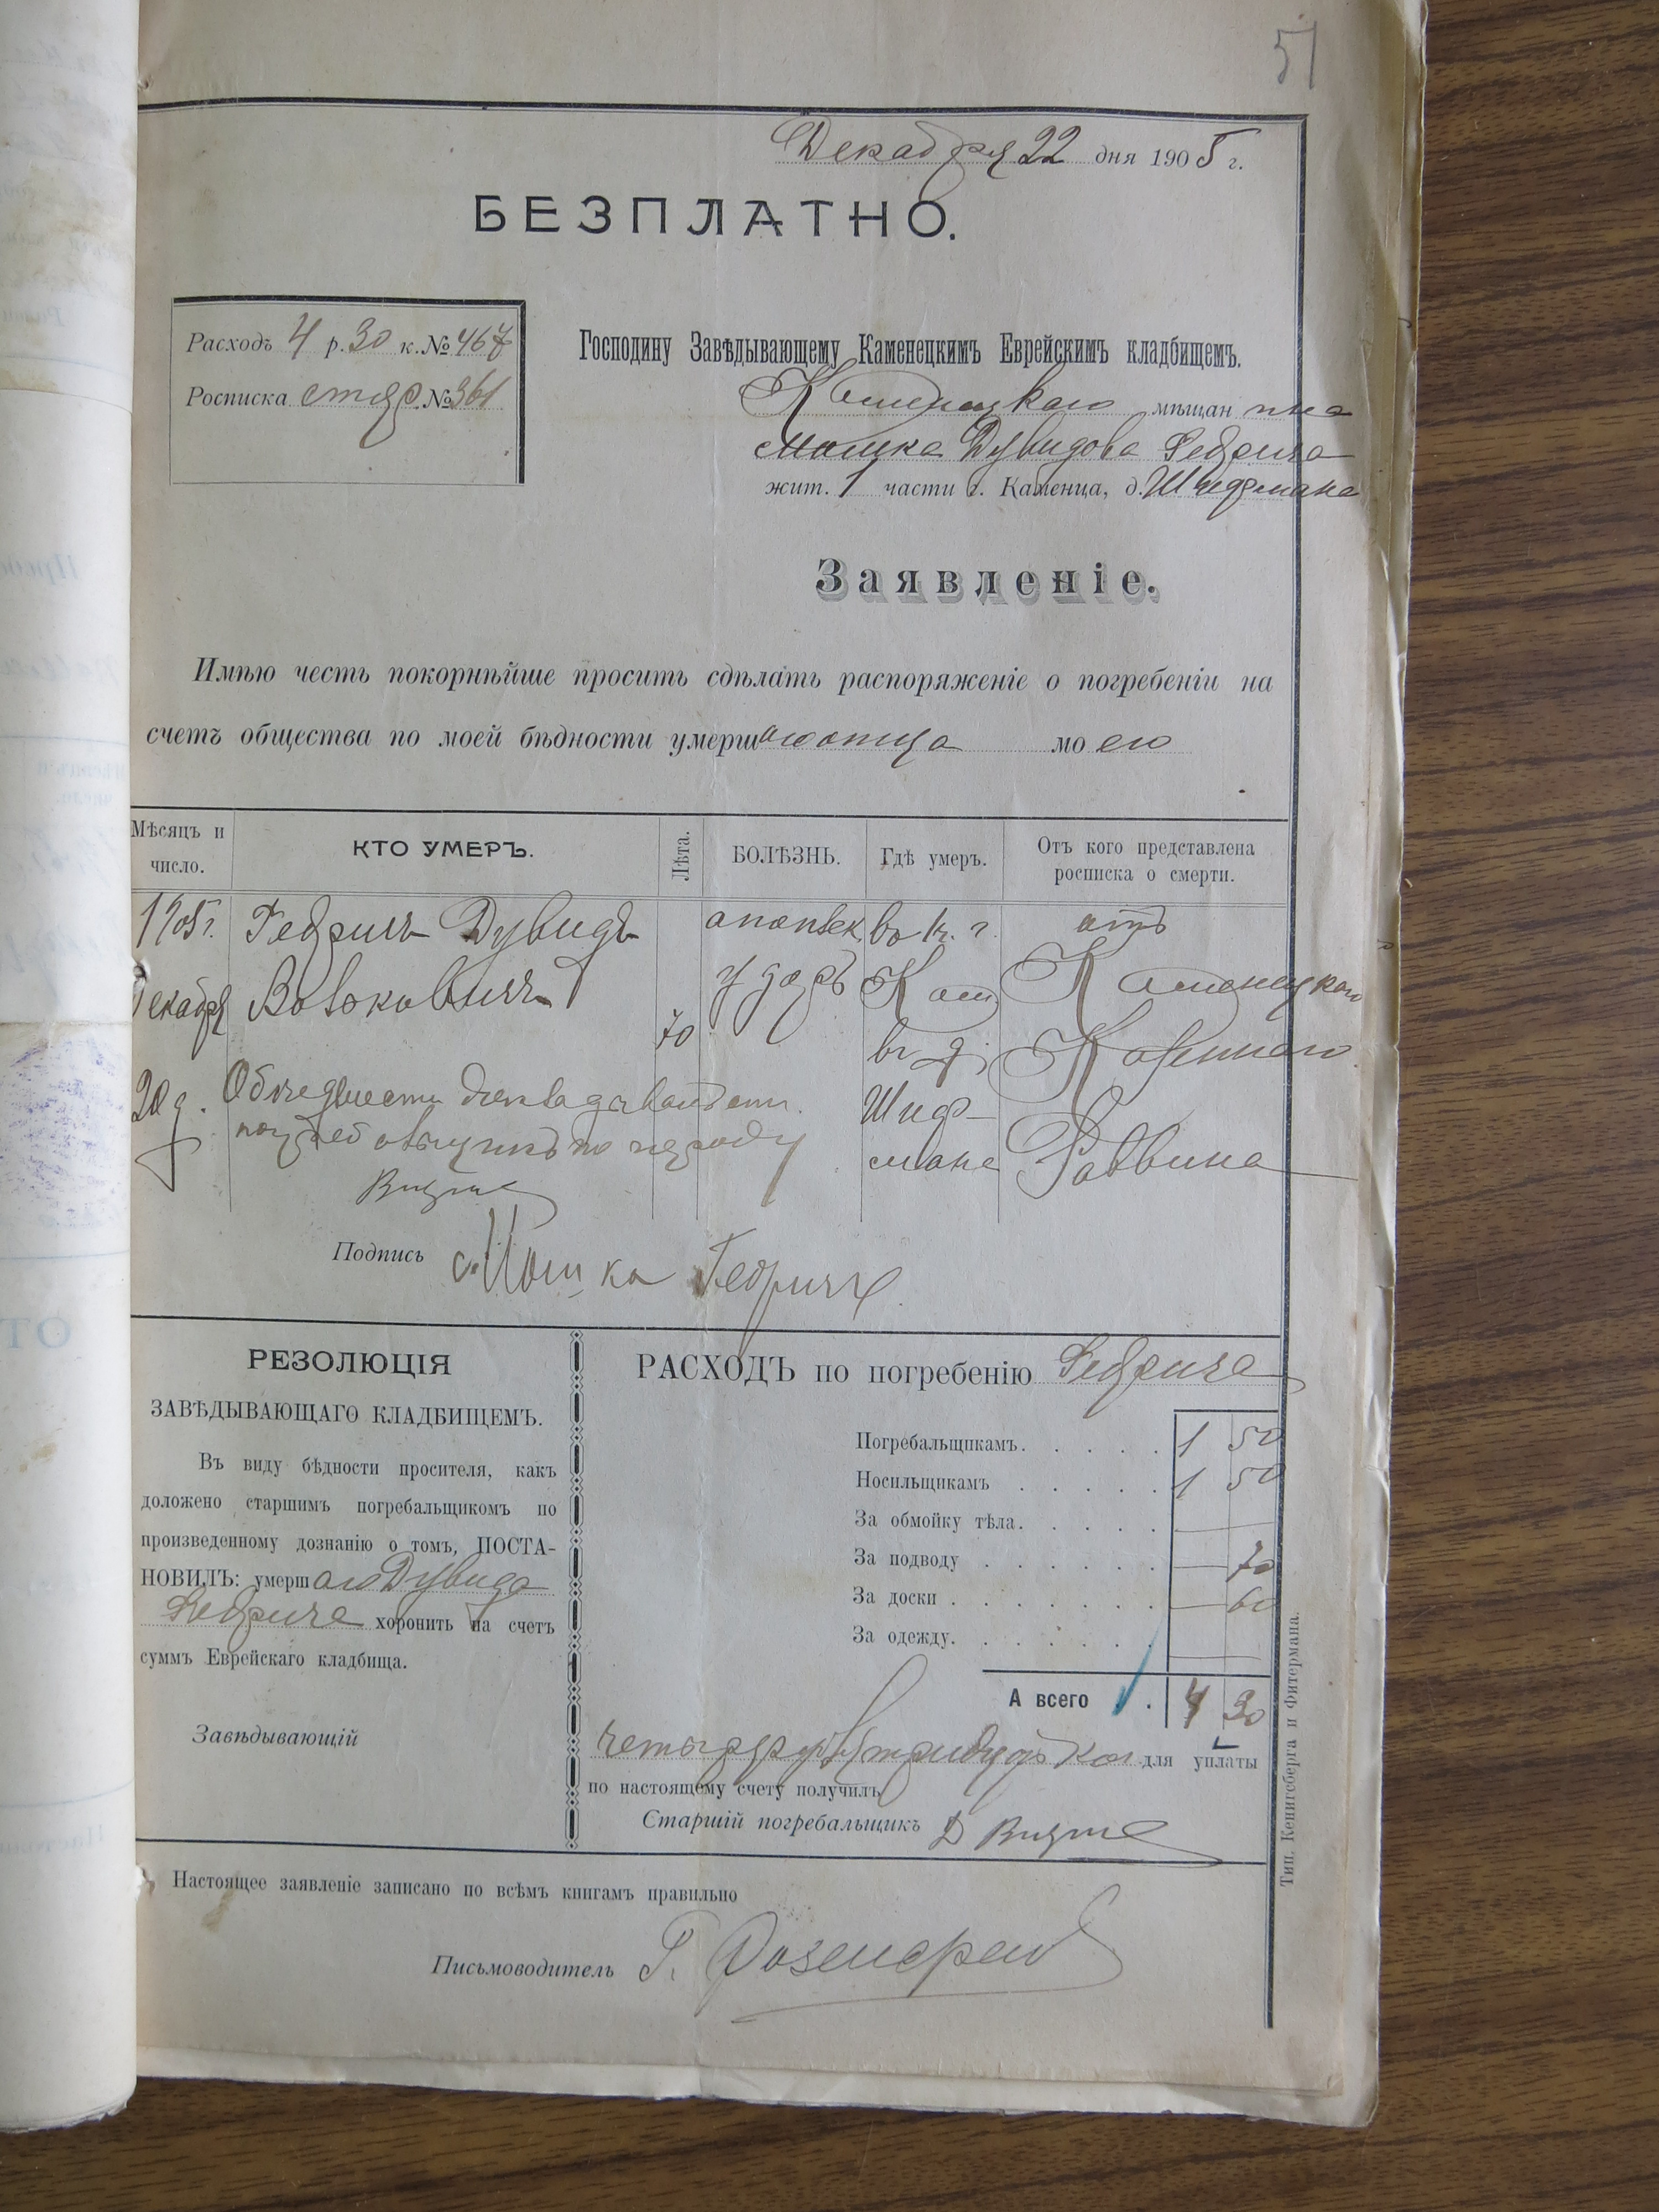 51
Декабря 22 дня 1905 г.
БЕЗПЛАТНО.
Расходъ 4 р. 30 к. № 467
Росписка стар. № 361
Господину Завѣдывающему Каменецкимъ Еврейскимъ кладбищемъ.
Каменецкаго мѣщанина
Мошка Дувидова Гедрича
жит. 1 части г. Каменца, д. Шифмана
Заявленіе.
Имѣю честь покорнѣйше просить сдѣлать распоряженіе о погребеніи на
счетъ общества по моей бѣдности умершаго отца моего
Мѣсяцъ и число.
КТО УМЕРЪ.
Лѣта.
БОЛѢЗНЬ.
Гдѣ умеръ.
Отъ кого представлена росписка о смерти.
1905 г. Гедричъ Дувидъ апоплек. въ к. г. отъ
Декабря Вовковичъ 70 ударъ Кам Каменецкаго
въ д. Казеннаго
20 д. Шиф-
мана Раввина
Подпись Мошка Гедричъ
РЕЗОЛЮЦІЯ
ЗАВѢДЫВАЮЩАГО КЛАДБИЩЕМЪ.
Въ виду бѣдности просителя, какъ
доложено старшимъ погребальщикомъ по
произведенному дознанію о томъ, ПОСТА-
НОВИЛЪ: умершаго Дувида
Гедрича хоронить на счетъ
суммъ Еврейскаго кладбища.
Завѣдывающій
РАСХОДЪ по погребенію Гедрича
Погребальщикамъ. . . . . 1 50
Носильщикамъ . . . . . 1 50
За обмойку тѣла. . . . .
За подводу . . . . . . — 70
За доски . . . . . . . — 60
За одежду. . . . . . .
А всего . 4 30
четыре руб. тридцать коп. для уплаты
по настоящему счету получилъ
Старшій погребальщикъ Д
Настоящее заявленіе записано по всѣмъ книгамъ правильно
Письмоводитель Г. Розенфельд
Тип. Кенигсберга и Фитермана.